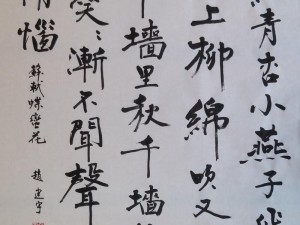 青杏小燕子飛
上柳綿吹又
墻里秋千墻
笑〻漸不聞聲
惱
蘇軾蝶戀花
趙建